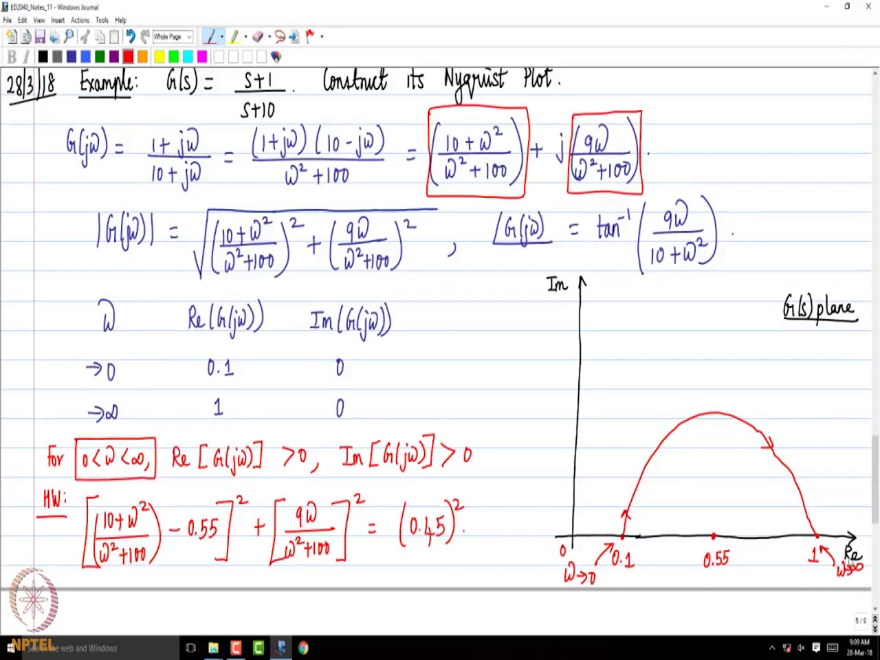 ED2040_Notes_11 - Windows Journal
File Edit View Insert Actions Tools Help
Whole Page
B I
28/3/18 Example: G(s) = (s+1)/(s+10) . Construct its Nyquist Plot.
G(jω) = (1+jω)/(10+jω) = (1+jω)(10-jω)/(ω²+100) = ((10+ω²)/(ω²+100)) + j(9ω/(ω²+100)).
|G(jω)| = √(((10+ω²)/(ω²+100))² + (9ω/(ω²+100))²) , ∠G(jω) = tan⁻¹(9ω/(10+ω²)).
Im
G(s) plane
ω Re(G(jω)) Im(G(jω))
→0 0.1 0
→∞ 1 0
For 0<ω<∞, Re[G(jω)] >0, Im[G(jω)] >0
HW: [((10+ω²)/(ω²+100)) - 0.55]² + [9ω/(ω²+100)]² = (0.45)².
0 0.1 0.55 1 Re
ω→0 ω→∞
NPTEL
5 / 6
Search the web and Windows
9:09 AM
28-Mar-18